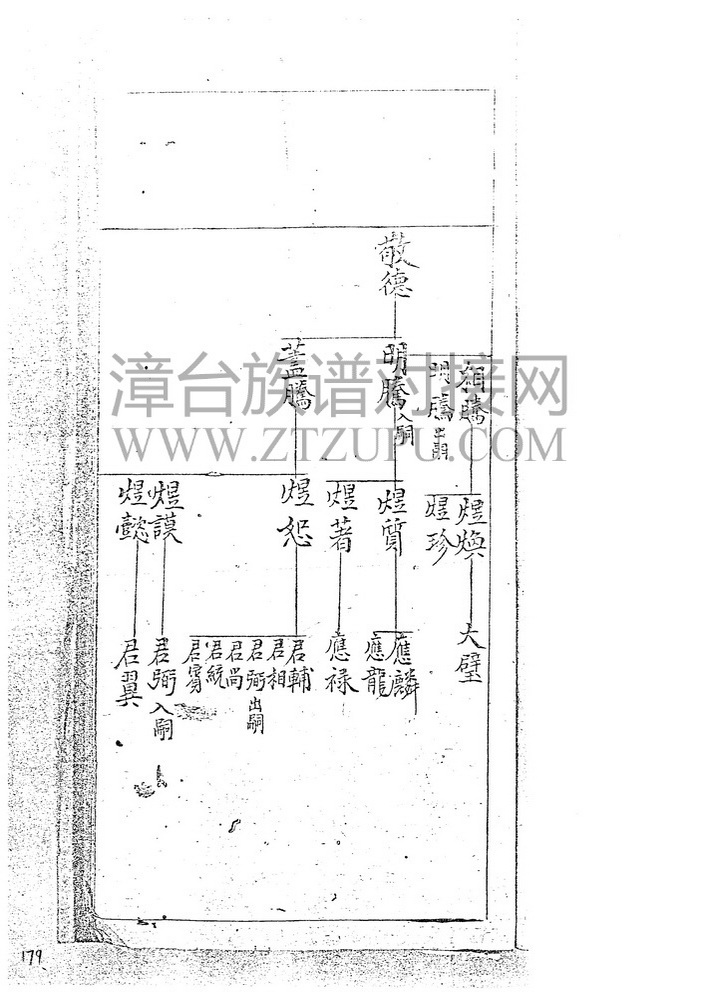 敬德
蓋騰
明騰入嗣
明騰出嗣
相騰
煜懿
煜謨
煜恕
煜著
煜質
煜珍
煜煥
君翼
君弼入嗣
君賓
君統
君尚
君弼出嗣
君相
君輔
應祿
應龍
應麟
大璧
漳台族谱对接网
WWW.ZTZUPU.COM
179